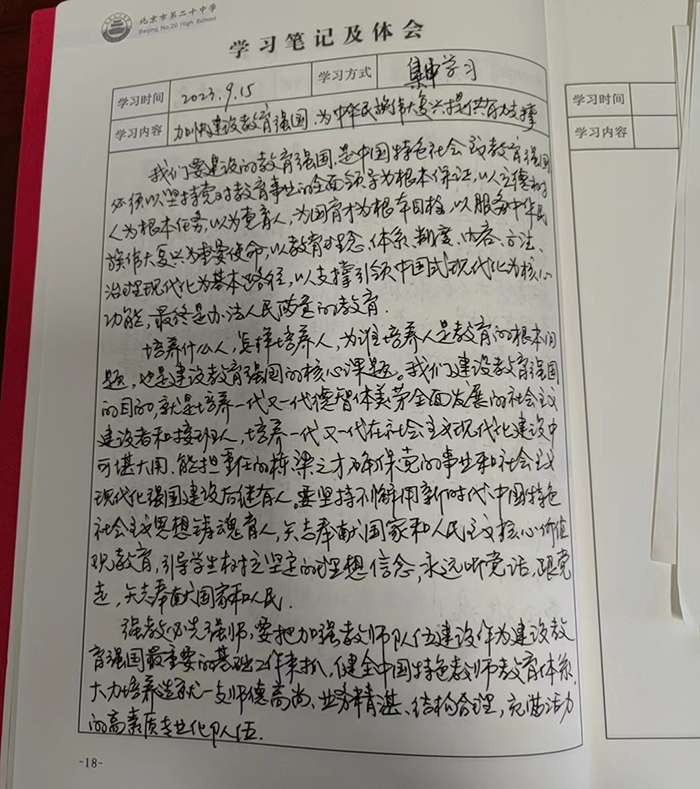 北京市第二十中学
Beijing No.20 High School
学习笔记及体会
学习时间 2023.9.15 学习方式 集中学习
学习内容 加快建设教育强国,为中华民族伟大复兴提供有力支撑
我们要建设的教育强国,是中国特色社会主义教育强国
必须以坚持党对教育事业的全面领导为根本保证,以立德树
人为根本任务,以为党育人,为国育才为根本目标,以服务中华民
族伟大复兴为重要使命,以教育理念、体系、制度、内容、方法、
治理现代化为基本路径,以支撑引领中国式现代化为核心
功能,最终是办法人民满意的教育.
培养什么人,怎样培养人,为谁培养人是教育的根本问
题,也是建设教育强国的核心课题。我们建设教育强国
的目的,就是培养一代又一代德智体美劳全面发展的社会主义
建设者和接班人,培养一代又一代在社会主义现代化建设中
可堪大用、能担重任的栋梁之才确保党的事业和社会主义
现代化强国建设后继有人。要坚持不懈用新时代中国特色
社会主义思想铸魂育人,矢志奉献国家和人民主义核心价值
观教育,引导学生树立坚定的理想信念,永远听党话,跟党
走,矢志奉献国家和人民.
强教必先强师,要把加强教师队伍建设作为建设教
育强国最重要的基础工作来抓,健全中国特色教师教育体系,
大力培养造就一支师德高尚、业务精湛、结构合理,充满活力
的高素质专业化队伍.
-18-
学习时间
学习内容